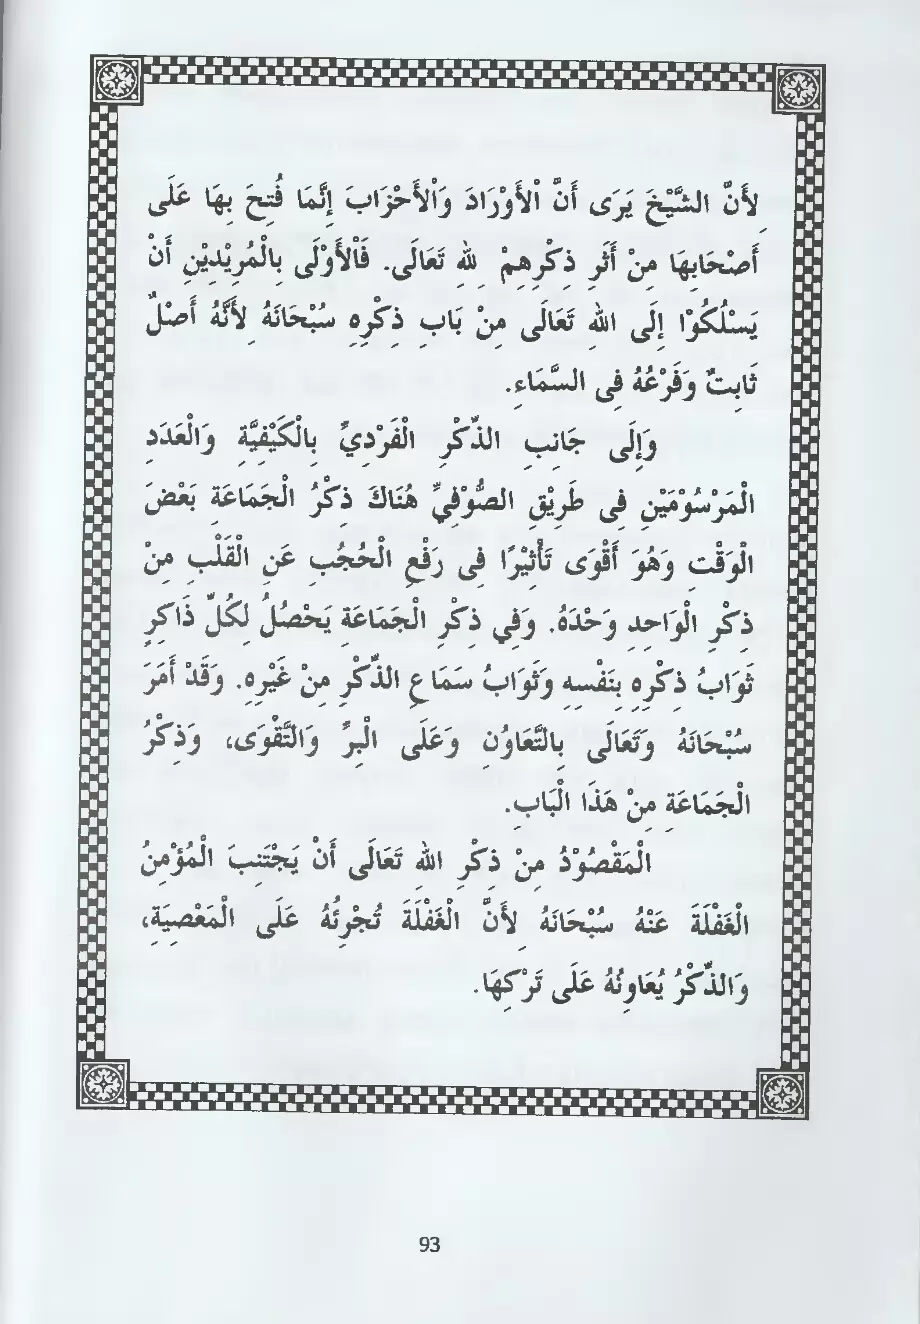 لأَنَّ الشَّيْخَ يَرَى أَنَّ الْأَوْرَادَ وَالْأَحْزَابَ إِنَّمَا فُتِحَ بِهَا عَلَى
أَصْحَابِهَا مِنْ أَثَرِ ذِكْرِهِمْ لِلّٰهِ تَعَالَى. فَالْأَوْلَى بِالْمُرِيْدِيْنَ أَنْ
يَسْلُكُوْا إِلَى اللهِ تَعَالَى مِنْ بَابِ ذِكْرِهِ سُبْحَانَهُ لأَنَّهُ أَصْلٌ
ثَابِتٌ وَفَرْعُهُ فِى السَّمَاءِ.
وَإِلَى جَانِبِ الذِّكْرِ الْفَرْدِيِّ بِالْكَيْفِيَّةِ وَالْعَدَدِ
الْمَرْسُوْمَيْنِ فِى طَرِيْقِ الصُّوْفِيِّ هُنَاكَ ذِكْرُ الْجَمَاعَةِ بَعْضَ
الْوَقْتِ وَهُوَ أَقْوَى تَأْثِيْرًا فِى رَفْعِ الْحُجُبِ عَنِ الْقَلْبِ مِنْ
ذِكْرِ الْوَاحِدِ وَحْدَهُ. وَفِي ذِكْرِ الْجَمَاعَةِ يَحْصُلُ لِكُلِّ ذَاكِرٍ
ثَوَابُ ذِكْرِهِ بِنَفْسِهِ وَثَوَابُ سَمَاعِ الذِّكْرِ مِنْ غَيْرِهِ. وَقَدْ أَمَرَ
سُبْحَانَهُ وَتَعَالَى بِالتَّعَاوُنِ وَعَلَى الْبِرِّ وَالتَّقْوَى، وَذِكْرُ
الْجَمَاعَةِ مِنْ هَذَا الْبَابِ.
الْمَقْصُوْدُ مِنْ ذِكْرِ اللهِ تَعَالَى أَنْ يَجْتَنِبَ الْمُؤْمِنُ
الْغَفْلَةَ عَنْهُ سُبْحَانَهُ لأَنَّ الْغَفْلَةَ تُجْرِئُهُ عَلَى الْمَعْصِيَةِ،
وَالذِّكْرُ يُعَاوِنُهُ عَلَى تَرْكِهَا.
93